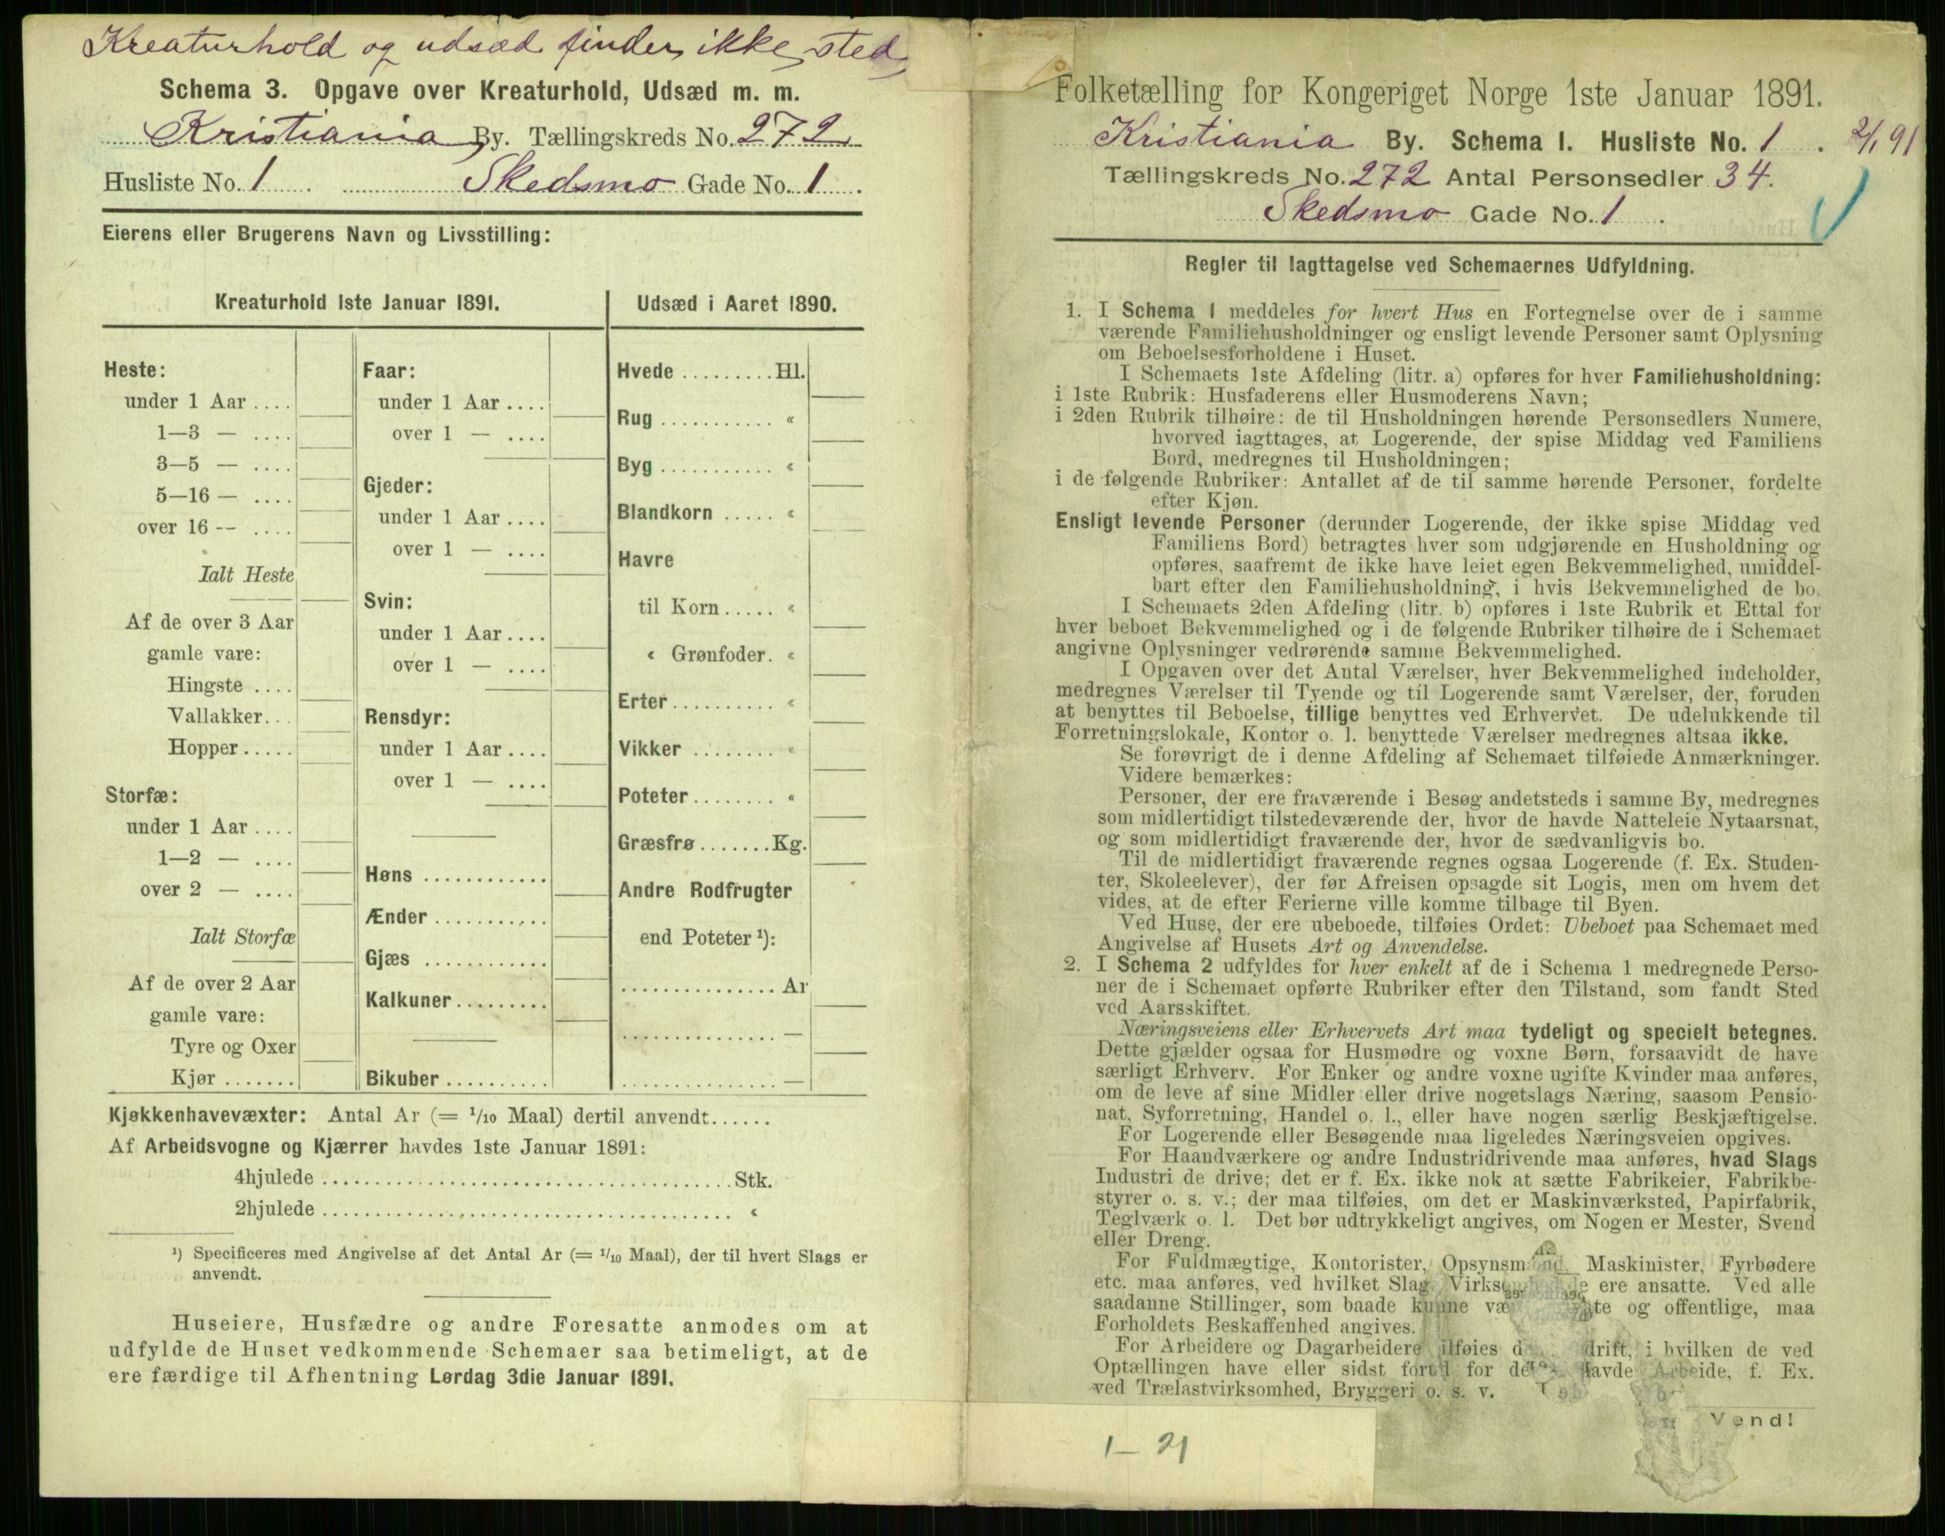 Kreaturhold og udsæd finder ikke sted
Schema 3. Opgave over Kreaturhold, Udsæd m. m.
Kristiania By. Tællingskreds No. 272
Husliste No. 1 Skedsmo Gade No. 1.
Eierens eller Brugerens Navn og Livsstilling:
Kreaturhold 1ste Januar 1891.
Heste:
under 1 Aar ....
1—3 — ....
3—5 — ....
5—16 — ....
over 16 -- ....
Ialt Heste
Af de over 3 Aar
gamle vare:
Hingste ....
Vallakker...
Hopper.....
Storfæ:
under 1 Aar ....
1—2 — ....
over 2 — ....
Ialt Storfæ
Af de over 2 Aar
gamle vare:
Tyre og Oxer
Kjør .......
Faar:
under 1 Aar ....
over 1 — ....
Gjeder:
under 1 Aar....
over 1 — ....
Svin:
under 1 Aar....
over 1 — ....
Rensdyr:
under 1 Aar....
over 1 — ....
Høns ............
Ænder ...........
Gjæs ............
Kalkuner.........
Bikuber ..........
Udsæd i Aaret 1890.
Hvede .........Hl.
Rug ........... «
Byg ........... «
Blandkorn ..... «
Havre
til Korn ..... «
« Grønfoder. «
Erter.......... «
Vikker ........ «
Poteter........ «
Græsfrø.......Kg.
Andre Rodfrugter
end Poteter ¹):
...............Ar
............... —
............... —
Kjøkkenhavevæxter: Antal Ar (= 1/10 Maal) dertil anvendt......
Af Arbeidsvogne og Kjærrer havdes 1ste Januar 1891:
4hjulede ........................................Stk.
2hjulede ........................................ «
¹) Specificeres med Angivelse af det Antal Ar (= 1/10 Maal), der til hvert Slags er
anvendt.
Huseiere, Husfædre og andre Foresatte anmodes om at
udfylde de Huset vedkommende Schemaer saa betimeligt, at de
ere færdige til Afhentning Lørdag 3die Januar 1891.
Folketælling for Kongeriget Norge 1ste Januar 1891.
Kristiania By. Schema 1. Husliste No. 1. 2/1 91
Tællingskreds No. 272 Antal Personsedler 34.
Skedsmo Gade No. 1.
Regler til Iagttagelse ved Schemaernes Udfyldning.
1. I Schema 1 meddeles for hvert Hus en Fortegnelse over de i samme
værende Familiehusholdninger og ensligt levende Personer samt Oplysning
om Beboelsesforholdene i Huset.
I Schemaets 1ste Afdeling (litr. a) opføres for hver Familiehusholdning:
i 1ste Rubrik: Husfaderens eller Husmoderens Navn;
i 2den Rubrik tilhøire: de til Husholdningen hørende Personsedlers Numere,
hvorved iagttages, at Logerende, der spise Middag ved Familiens
Bord, medregnes til Husholdningen;
i de følgende Rubriker: Antallet af de til samme hørende Personer, fordelte
efter Kjøn.
Ensligt levende Personer (derunder Logerende, der ikke spise Middag ved
Familiens Bord) betragtes hver som udgjørende en Husholdning og
opføres, saafremt de ikke have leiet egen Bekvemmelighed, umiddel-
bart efter den Familiehusholdning, i hvis Bekvemmelighed de bo.
I Schemaets 2den Afdeling (litr. b) opføres i 1ste Rubrik et Ettal for
hver beboet Bekvemmelighed og i de følgende Rubriker tilhøire de i Schemaet
angivne Oplysninger vedrørende samme Bekvemmelighed.
I Opgaven over det Antal Værelser, hver Bekvemmelighed indeholder,
medregnes Værelser til Tyende og til Logerende samt Værelser, der, foruden
at benyttes til Beboelse, tillige benyttes ved Erhvervet. De udelukkende til
Forretningslokale, Kontor o. l. benyttede Værelser medregnes altsaa ikke.
Se forøvrigt de i denne Afdeling af Schemaet tilføiede Anmærkninger.
Videre bemærkes:
Personer, der ere fraværende i Besøg andetsteds i samme By, medregnes
som midlertidigt tilstedeværende der, hvor de havde Natteleie Nytaarsnat,
og som midlertidigt fraværende der, hvor de sædvanligvis bo.
Til de midlertidigt fraværende regnes ogsaa Logerende (f. Ex. Studen-
ter, Skoleelever), der før Afreisen opsagde sit Logis, men om hvem det
vides, at de efter Ferierne ville komme tilbage til Byen.
Ved Huse, der ere ubeboede, tilføies Ordet: Ubeboet paa Schemaet med
Angivelse af Husets Art og Anvendelse.
2. I Schema 2 udfyldes for hver enkelt af de i Schema 1 medregnede Perso-
ner de i Schemaet opførte Rubriker efter den Tilstand, som fandt Sted
ved Aarsskiftet.
Næringsveiens eller Erhvervets Art maa tydeligt og specielt betegnes.
Dette gjælder ogsaa for Husmødre og voxne Børn, forsaavidt de have
særligt Erhverv. For Enker og andre voxne ugifte Kvinder maa anføres,
om de leve af sine Midler eller drive nogetslags Næring, saasom Pensio-
nat, Syforretning, Handel o. l., eller have nogen særlig Beskjæftigelse.
For Logerende eller Besøgende maa ligeledes Næringsveien opgives.
For Haandværkere og andre Industridrivende maa anføres, hvad Slags
Industri de drive; det er f. Ex. ikke nok at sætte Fabrikeier, Fabrikbe-
styrer o. s. v.; der maa tilføies, om det er Maskinværksted, Papirfabrik,
Teglværk o. l. Det bør udtrykkeligt angives, om Nogen er Mester, Svend
eller Dreng.
For Fuldmægtige, Kontorister, Opsynsmænd, Maskinister, Fyrbødere
etc. maa anføres, ved hvilket Slags Virksomhed de ere ansatte. Ved alle
saadanne Stillinger, som baade kunne være private og offentlige, maa
Forholdets Beskaffenhed angives.
For Arbeidere og Dagarbeidere tilføies den Bedrift, i hvilken de ved
Optællingen have eller sidst forud for denne havde Arbeide, f. Ex.
ved Trælastvirksomhed, Bryggeri o. s. v.
Vend!
1 — 21